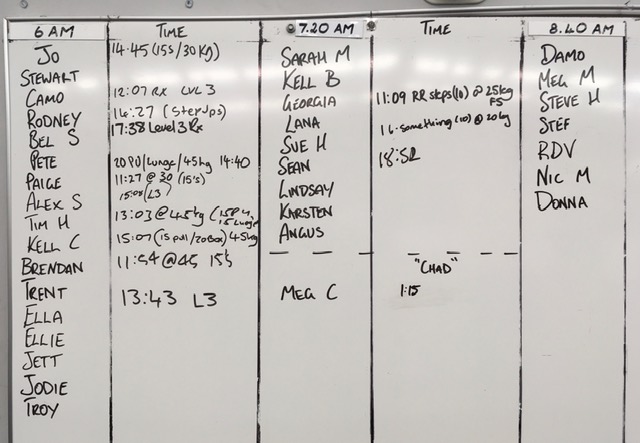 6 AM
TIME
7.20 AM
TIME
8.40 AM
JO
14:45 (15s/30kg)
STEWART
CAMO
12:07 RX LVL 3
RODNEY
14:27 (Step Ups)
BEL S
17:38 Level 3 Rx
PETE
20 PU/lunge/45kg 14:40
PAIGE
11:27 @ 30 (15's)
ALEX S
15:08 L3
TIM H
13:03 @ 45kg
KELL C
15:07 (15 pull/20Box) 45kg
BRENDAN
11:54 @45 15's
TRENT
13:43 L3
ELLA
ELLIE
JETT
JODIE
TROY
SARAH M
KELL B
GEORGIA
11:09 RR steps(10) @ 25kg
FS
LANA
16-something (10) @ 20kg
SUE H
18:52
SEAN
LINDSAY
KARSTEN
ANGUS
"CHAD"
MEG C
1:15
DAMO
MEG M
STEVE H
STEF
RDV
NIC M
DONNA